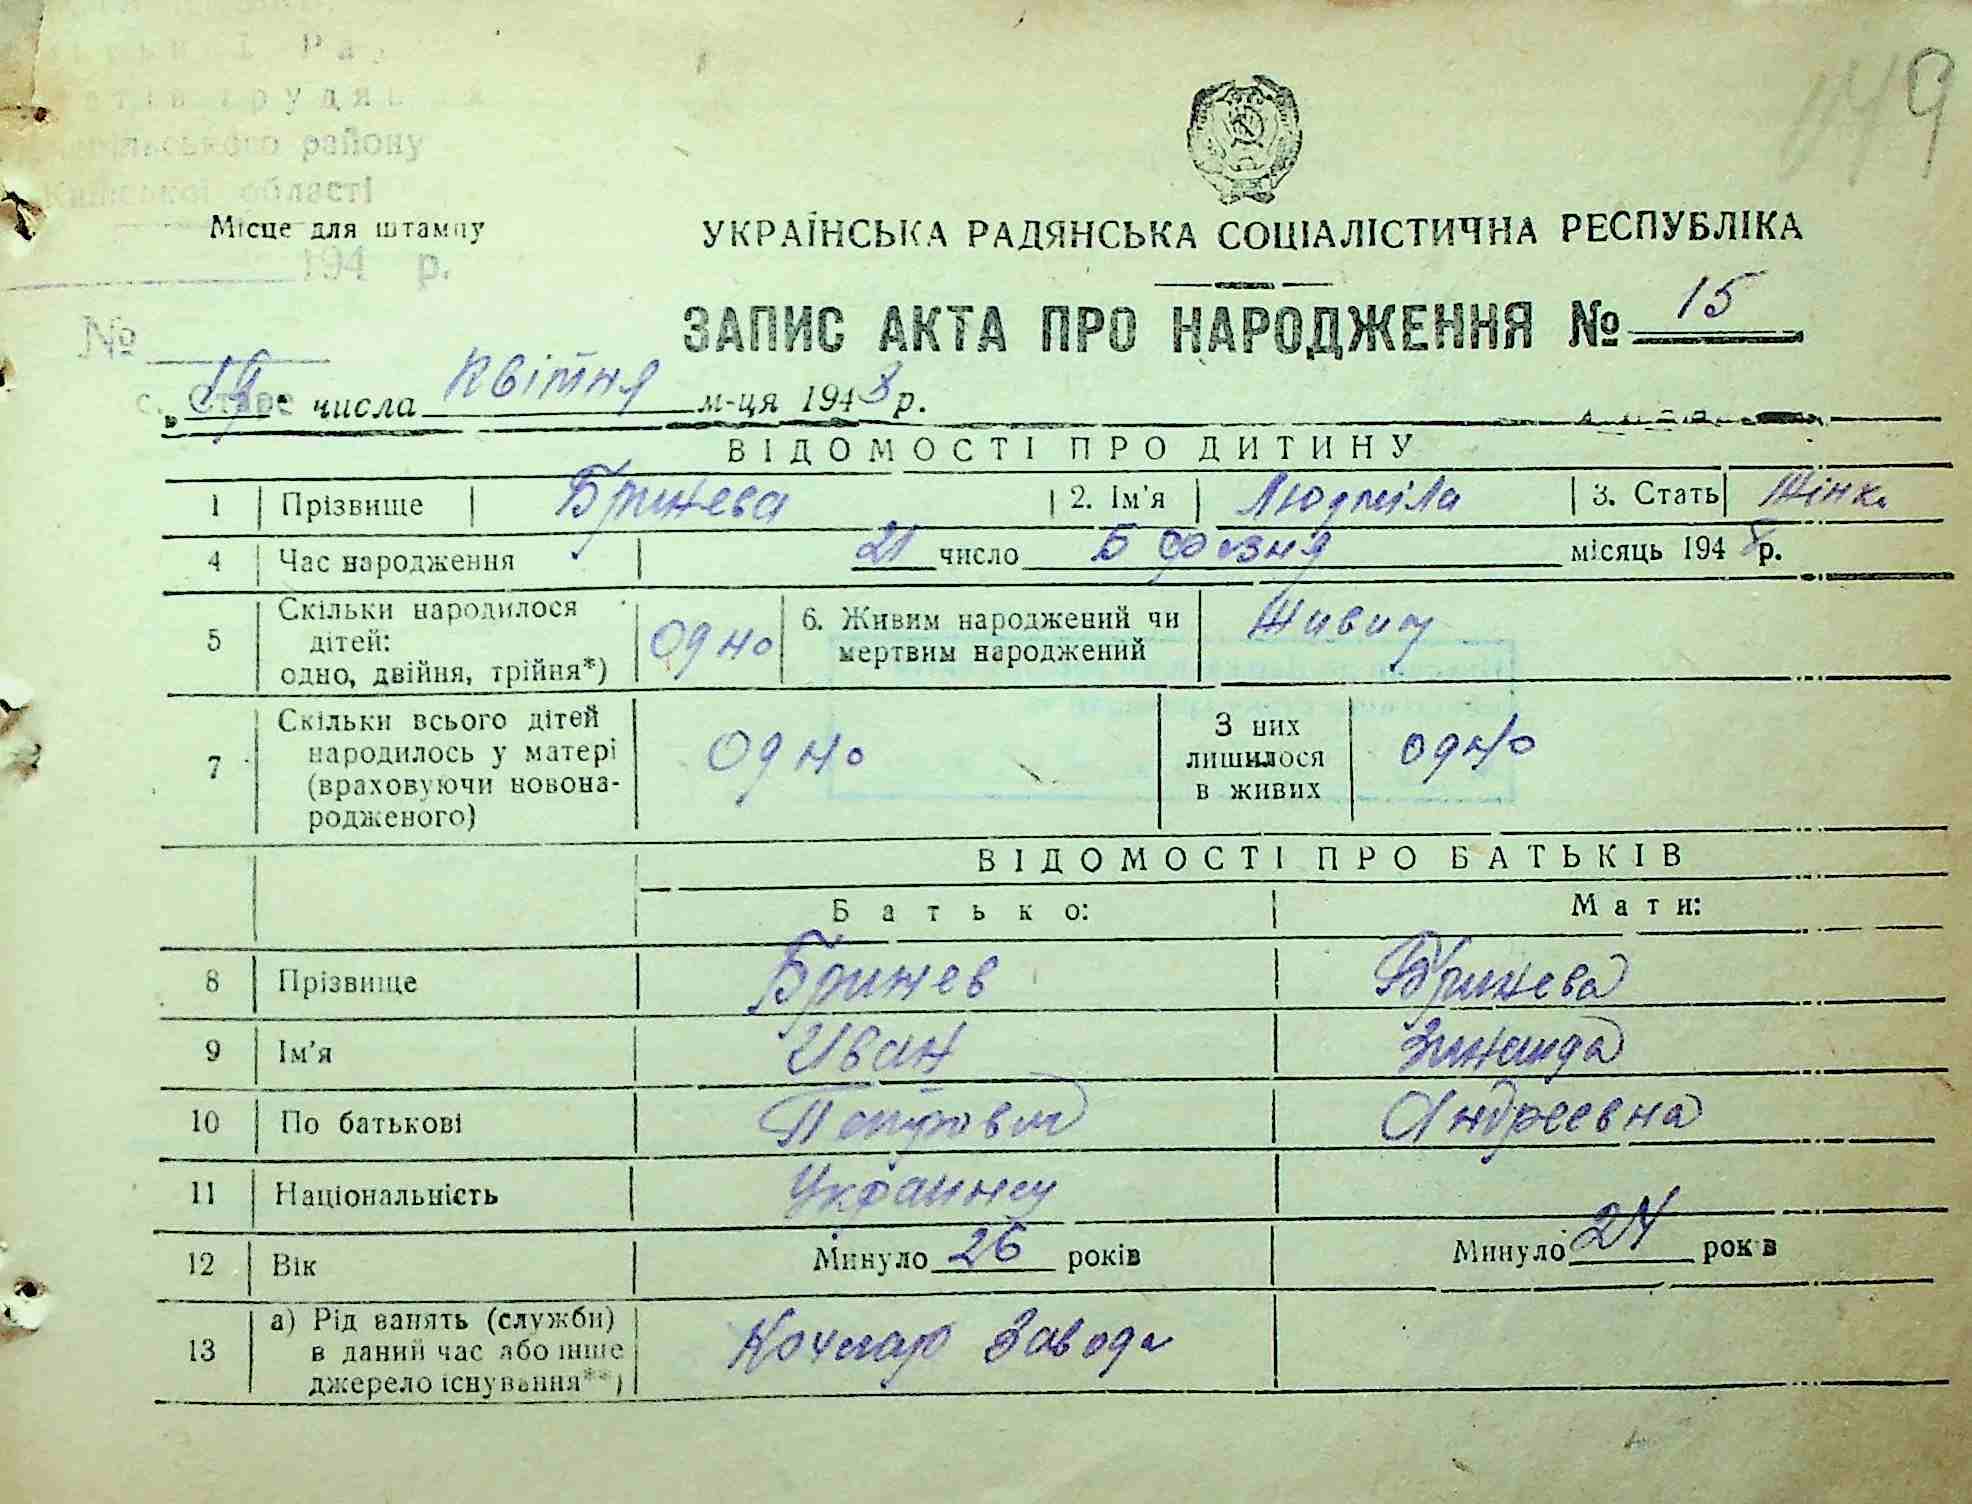 району
Київської області
Місце для штампу
194 р.
УКРАЇНСЬКА РАДЯНСЬКА СОЦІАЛІСТИЧНА РЕСПУБЛІКА
ЗАПИС АКТА ПРО НАРОДЖЕННЯ № 15
№
с. Старе
„19“ числа квітня м-ця 1948 р.
ВІДОМОСТІ ПРО ДИТИНУ
1 Прізвище Брижева 2. Ім'я Людміла 3. Стать Жінк.
4 Час народження 21 число Березня місяць 1948 р.
5 Скільки народилося дітей: одно, двійня, трійня*) Одно 6. Живим народжений чи мертвим народжений Живим
7 Скільки всього дітей народилось у матері (враховуючи новонародженого) Одно З них лишилося в живих одно
ВІДОМОСТІ ПРО БАТЬКІВ
Батько: Мати:
8 Прізвище Брижев Брижева
9 Ім'я Иван Зинаида
10 По батькові Петрович Андреевна
11 Національність
12 Вік Минуло 26 років Минуло 24 років
13 а) Рід занять (служби) в даний час або інше джерело існування**) Кочегар Завода